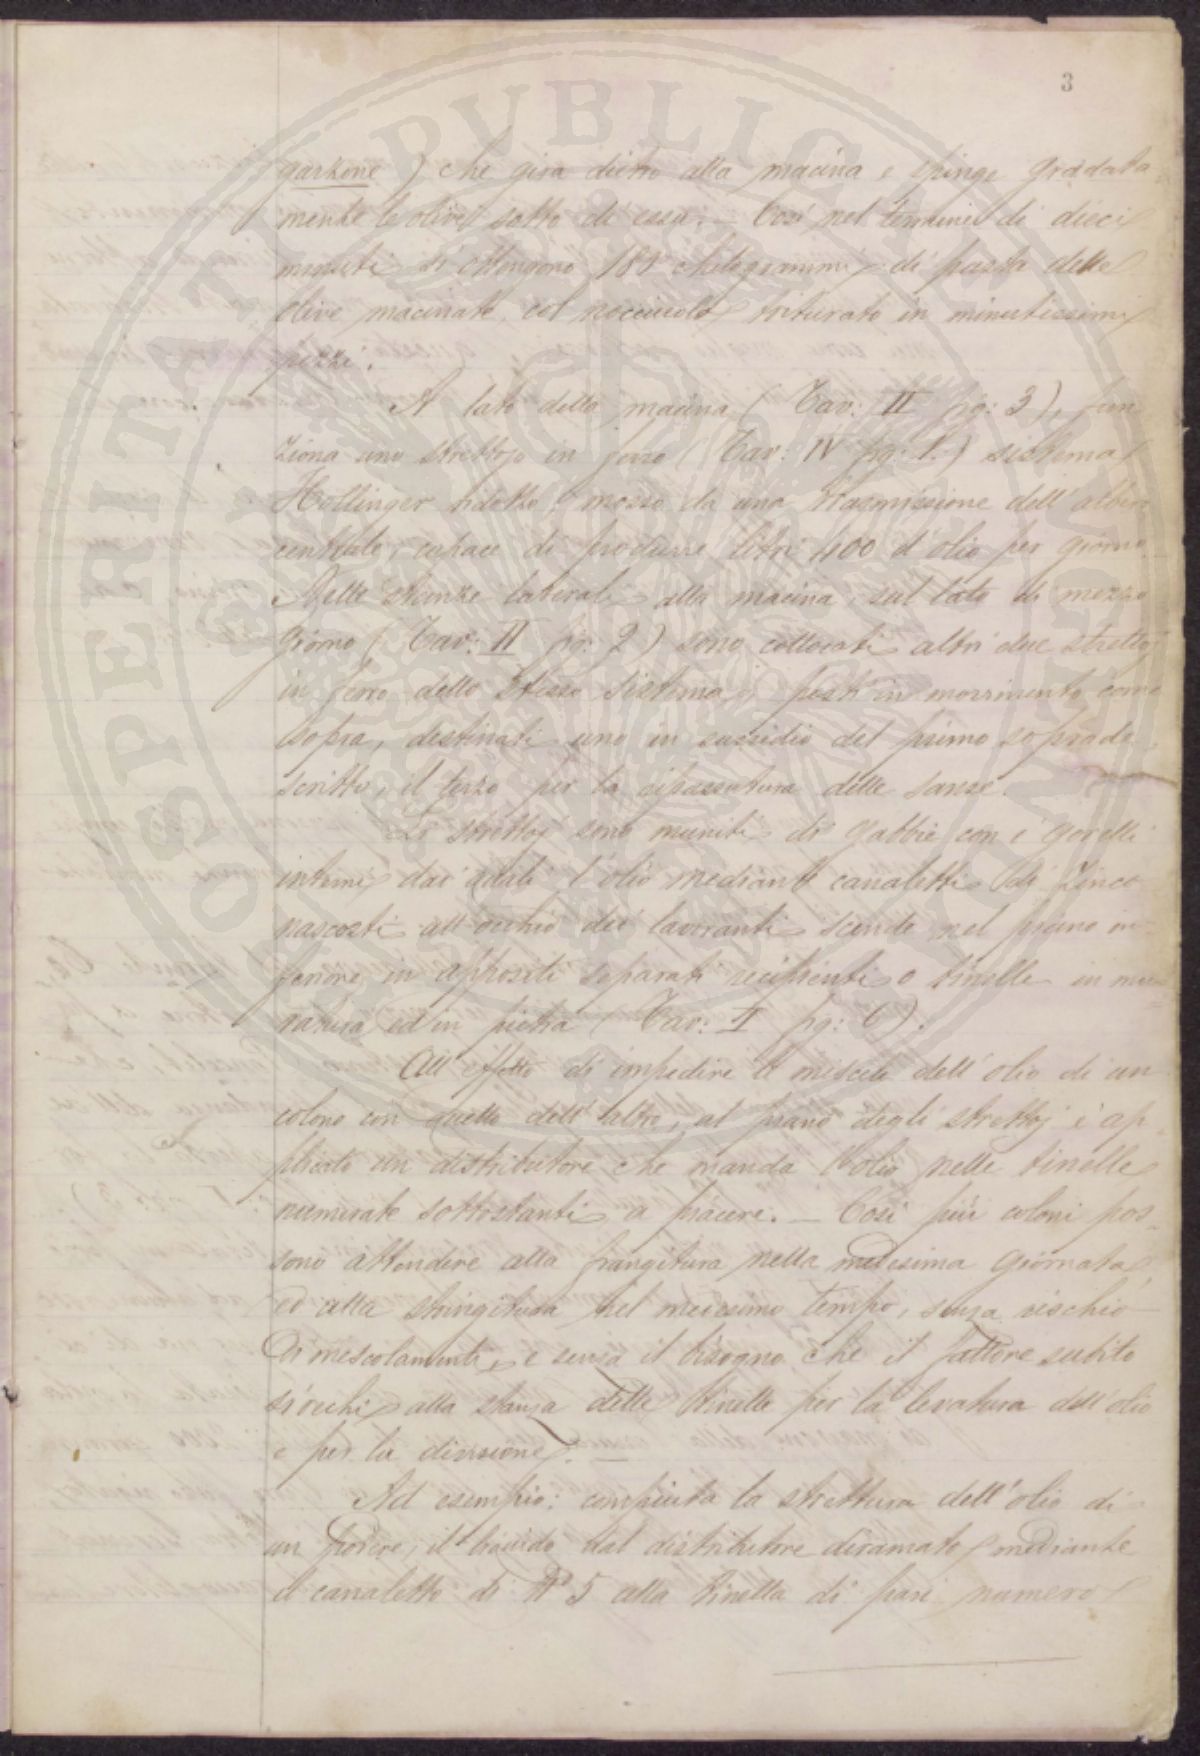 3
garzone) che gira dietro alla macina e spinge gradata-
mente le olive sotto di essa. — Così nel termine di dieci
minuti si ottengono 180 chilogrammi di pasta delle
olive macinate col nocciuolo triturato in minutissimi
pezzi.
A lato della macina (Tav: II fig: 3), fun
ziona uno strettojo in ferro (Tav: IV fig: 1.) sistema
Hollinger ridotto, mosso da una trasmissione dell'albero
centrale, capace di produrre litri 400 d'olio per giorno.
Nelle stanze laterali alla macina, sul lato di mezzo
giorno (Tav: II fig: 2) sono collocati altri due strettoj
in ferro dello stesso sistema, posti in movimento come
sopra, destinati uno in sussidio del primo soprade-
scritto, il terzo per la ripassatura delle sanse.
Li strettoj sono muniti di gabbie con i
interni dai quali l'olio mediante canaletti di Zinco
nascosti all'occhio dei lavoranti scende nel piano in-
feriore in appositi separati recipienti o tinelle in mu-
ratura ed in pietra (Tav: I fig: 6).
All'effetto di impedire la miscela dell'olio di un
colono con quello dell'altro, al piano degli strettoj è ap-
plicato un distributore che manda l'olio nelle tinelle
numerate sottostanti a piacere. — Così più coloni pos-
sono attendere alla frangitura nella medesima giornata
ed alla stringitura nel medesimo tempo, senza rischio
di mescolamenti, e senza il bisogno che il fattore subito
si rechi alla stanza delle tinelle per la levatura dell'olio
e per la divisione. —
Ad esempio: compiuta la strettura dell'olio di
un podere, il liquido dal distributore diramato mediante
il canaletto di N° 5 alla tinella di pari numero
PROSPERITATI PUBLICAE AUGENDAE